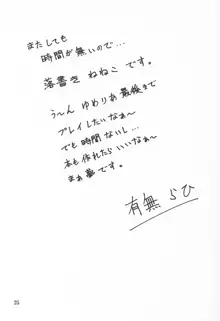 またしても
時間が無いので…
落書き ねねこ です。
う～ん ゆめりあ最後まで
プレイしたいなぁ～
でも時間ないし…
本も作れたらいいなぁ～
まぁ夢です。
有無 らひ
25